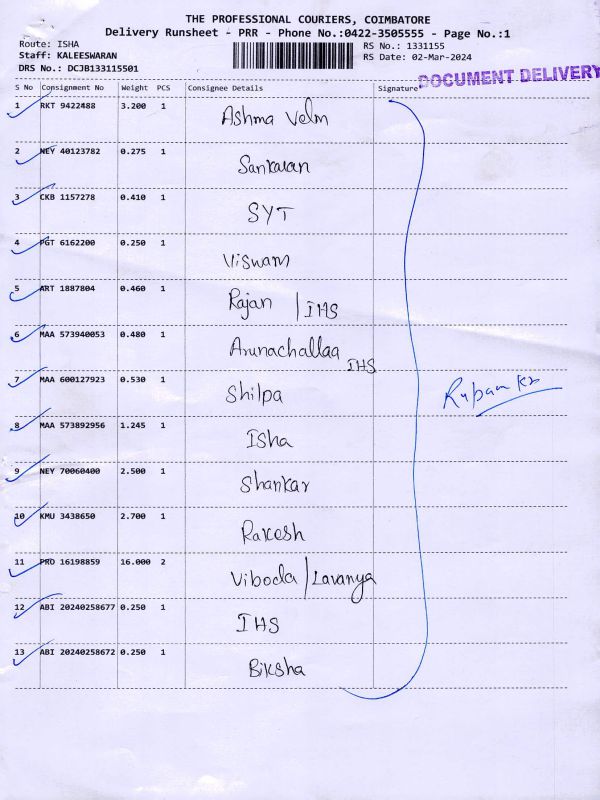 THE PROFESSIONAL COURIERS, COIMBATORE
Delivery Runsheet - PRR - Phone No.:0422-3505555 - Page No.:1
Route: ISHA RS No.: 1331155
Staff: KALEESWARAN RS Date: 02-Mar-2024
DRS No.: DCJB133115501
DOCUMENT DELIVERY
S No Consignment No Weight PCS Consignee Details Signature
1 RKT 9422488 3.200 1 Ashma Velm
2 NEY 40123782 0.275 1 Sankaran
3 CKB 1157278 0.410 1 SYT
4 PGT 6162200 0.250 1 Viswam
5 ART 1887804 0.460 1 Rajan | IHS
6 MAA 573940053 0.480 1 Arunachallaa IHS
7 MAA 600127923 0.530 1 Shilpa
8 MAA 573892956 1.245 1 Isha
9 NEY 70060400 2.500 1 Shankar
10 KMU 3438650 2.700 1 Rakesh
11 PRD 16198859 16.000 2 Viboda | Lavanya
12 ABI 20240258677 0.250 1 IHS
13 ABI 20240258672 0.250 1 Biksha